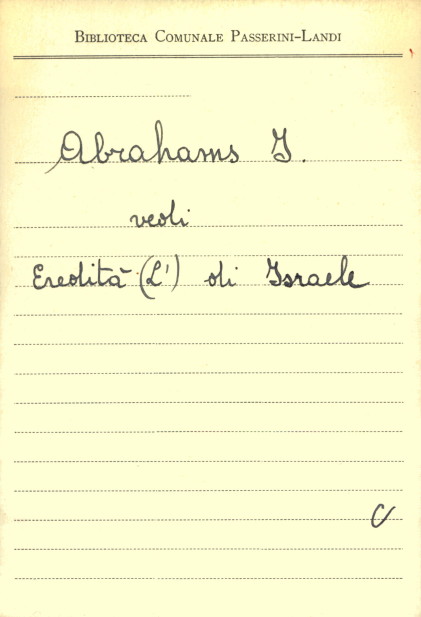 BIBLIOTECA COMUNALE PASSERINI-LANDI
Abrahams I.
vedi
Eredità (L') di Israele
C